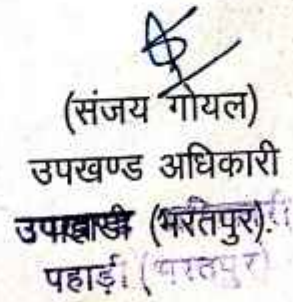 (संजय गोयल)
उपखण्ड अधिकारी
(भरतपुर).
पहाड़ी (भरतपुर)